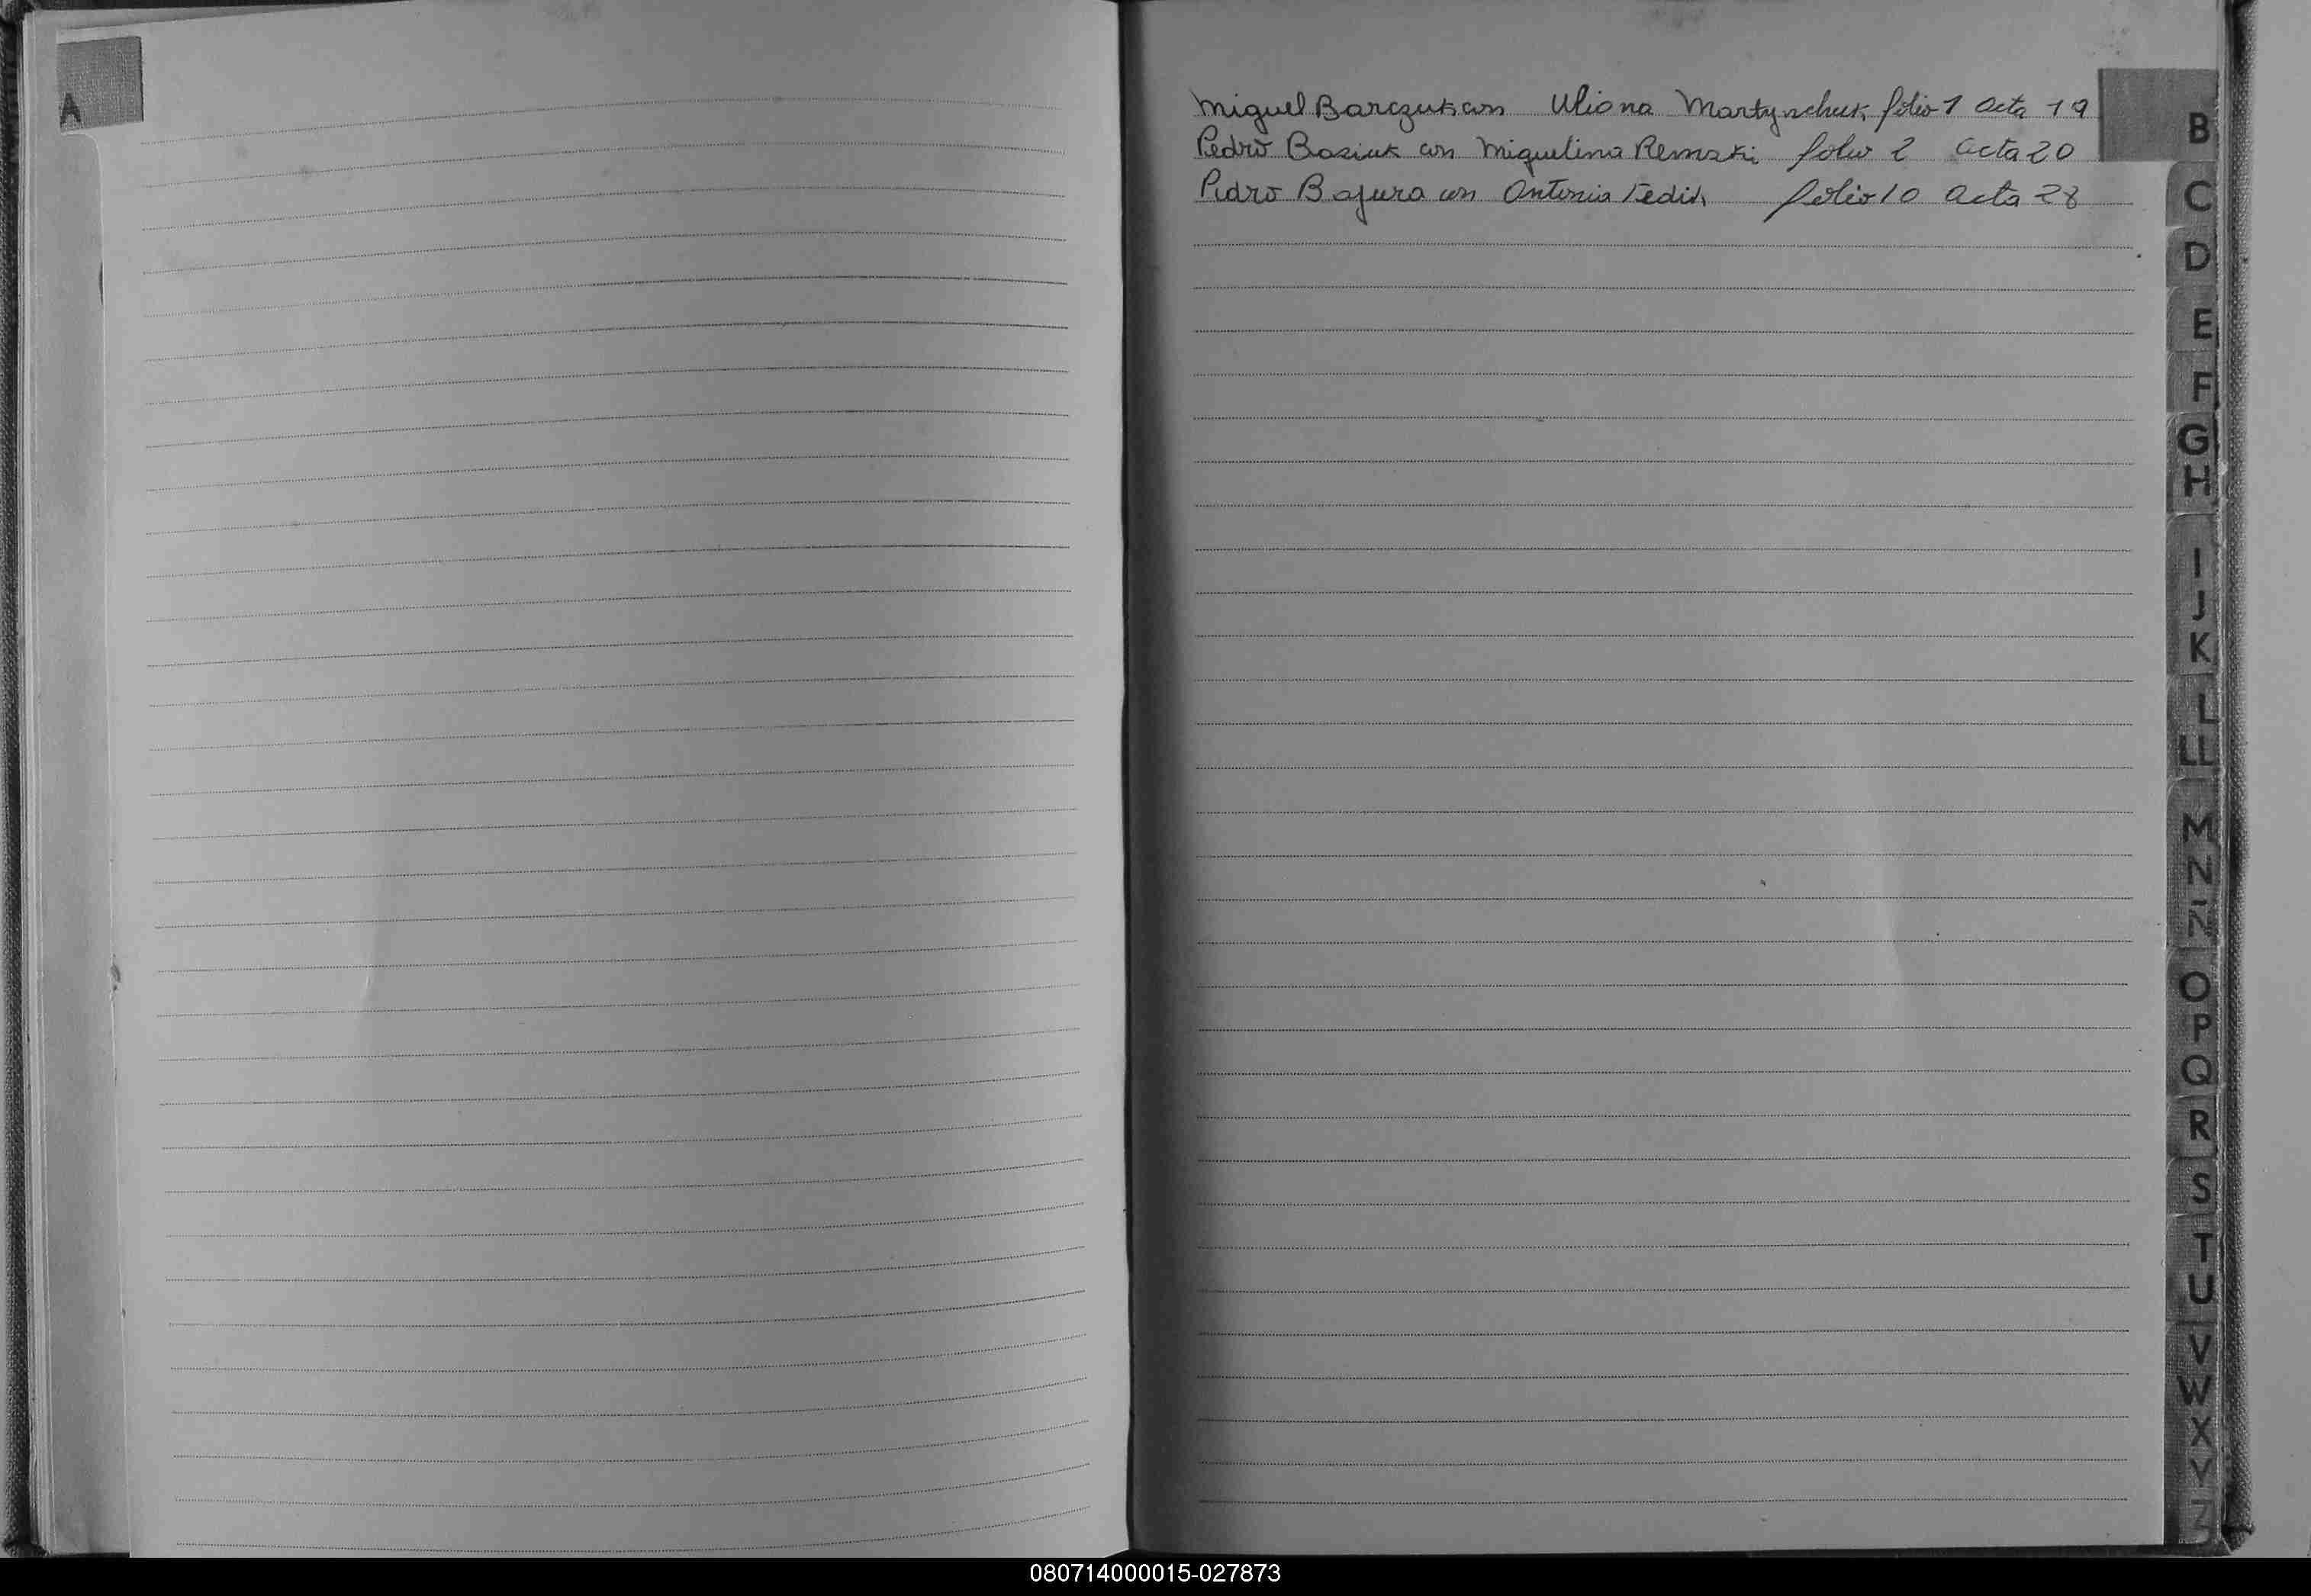 A
Miguel Barczuk con Uliana Martynchuk folio 1 acta 19
Pedro Basiuk con Miguelina Remski folio 2 acta 20
Pedro Bajura con Antonia folio 10 acta 28
B
C
D
E
F
G
H
I
J
K
L
LL
M
N
Ñ
O
P
Q
R
S
T
U
V
W
X
Y
Z
080714000015-027873